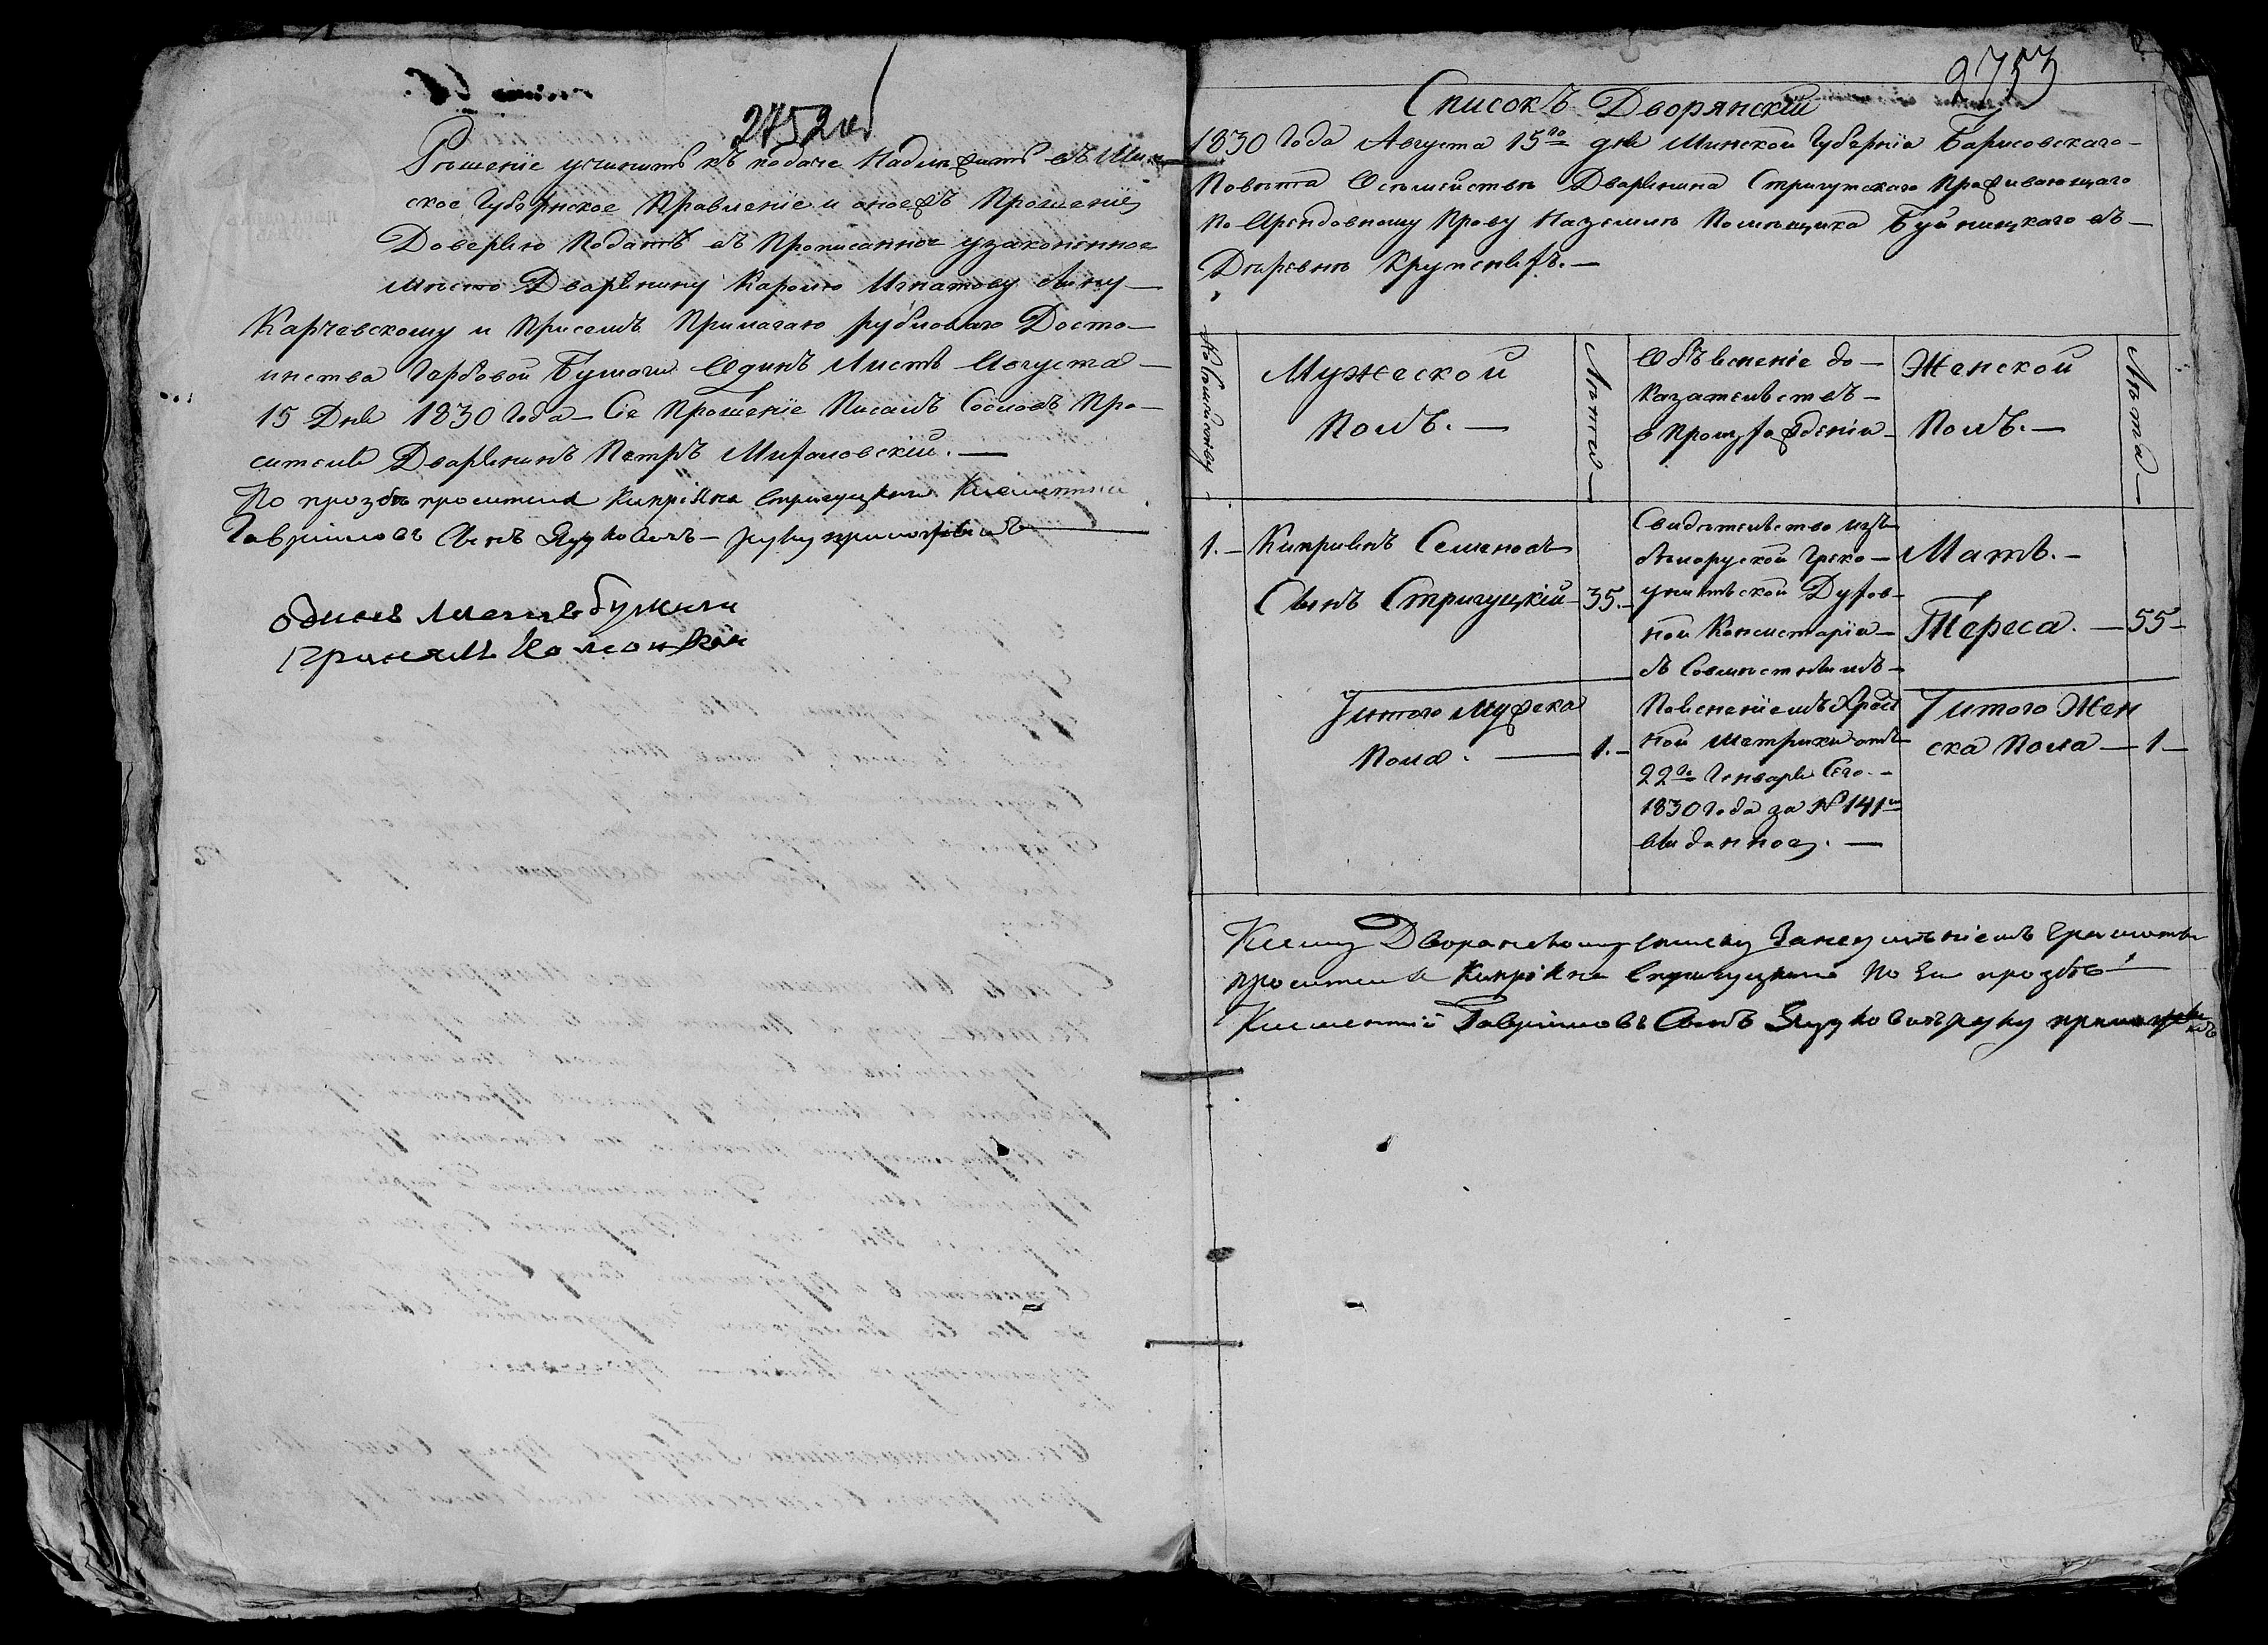 2752 об
Рѣшеніе учинить къ подаче надлежитъ въ Мин
ское Губернское Правленіе и оноежъ Прошеніе
Доверяю Подать въ Прописанное узаконенное
мѣсто Дварянину Каролю Игнатову Сыну
Карчевскому и присемъ Прилагаю рублеваго Досто-
инства Гербовой Бумаги Одинъ Листъ Августа
15 Дня 1830 Года Се Прошеніе Писалъ Сословъ Про-
сителя Дварянинъ Петръ Михаловскій.
По прозбѣ просителя Кипріяна Стригуцкаго Клементій
Гавріиловъ Сынъ руку приложилъ
Одинъ листъ бумаги
Принялъ
2753
Списокъ Дворянскій
1830 Года Августа 15го дня Минской Губерніи Барисовскаго
Повѣта О семействѣ Дварянина Стригуцкаго Проживающаго
По Арендовному Праву Наземлѣ Помѣщика Буйницкаго въ
Деревнѣ
№ Семействъ
Мужеской
Полъ.
Лѣта
Объясненіе до-
казательствъ
о происхожденіи
Женской
Полъ.
Лѣта
1. Киприянъ Семеновъ
Сынъ Стригуцкій 35.
Свидѣтельство изъ
бѣлоруской Греко-
унитской Духов-
ной Консисторіи
съ Совмѣстнымъ
Поясненіемъ
ной Метрики отъ
22го Генваря Сего
1830 Года за № 141м
выданное.
Мать.
Тереса. 55
Итого Мужеска
Пола. 1.
Итого Жен
ска Пола 1
Ксему Дворянскому списку Занеумѣніемъ Грамоты
просителя Кипріяна Стригуцкаго По Ея прозбѣ
Клементій Гавріиловъ Сынъ руку приложилъ